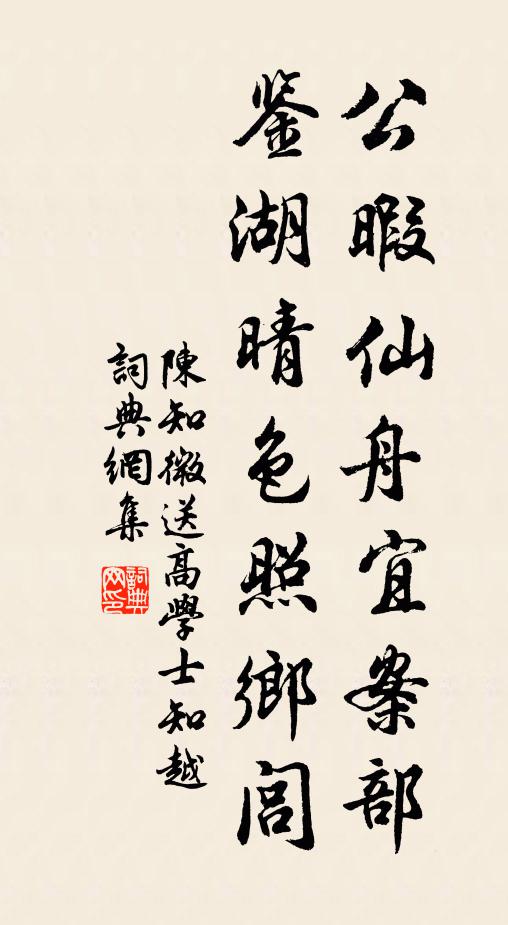 公暇仙舟宜案部
鉴湖晴色照鄉闾
陳知微送高學士知越
詞典網集
詞典网印